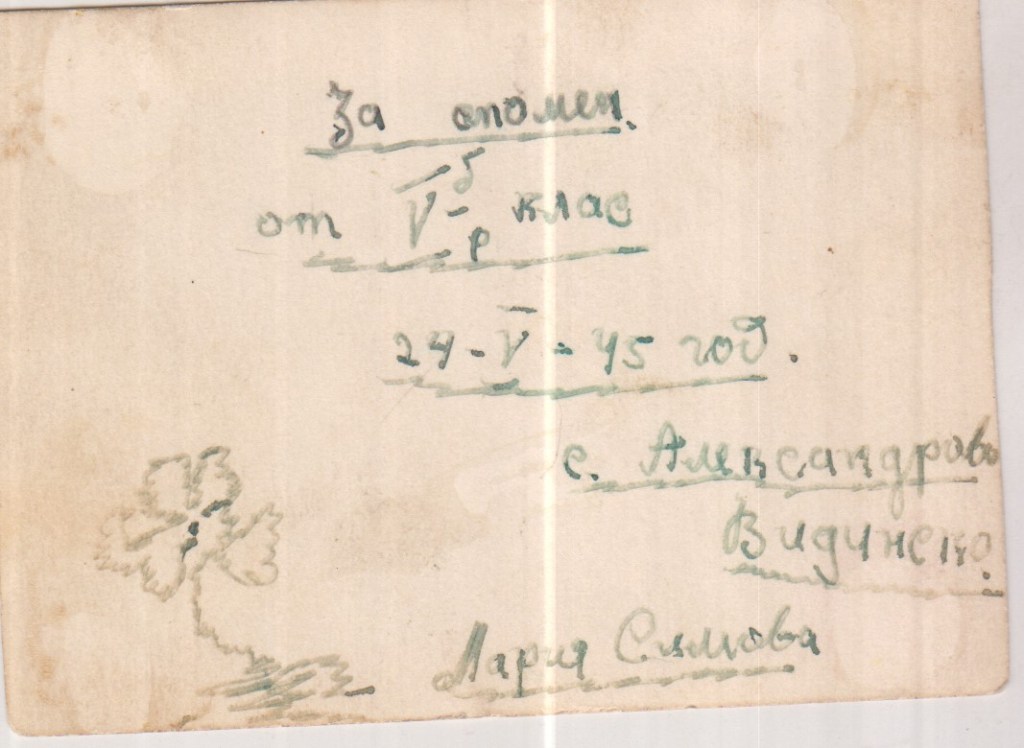 За спомен.
от V б р клас
24-V-45 год.
с. Александрово
Видинско.
Мария Симова